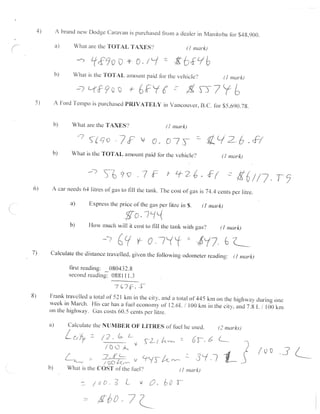 4) A brand new Dodge Caravan is purchased from a dealer in Manitoba for $48,900.
a) What are the TOTAL TAXES? (1 mark)
→ 48900 * 0.14 = $6846
b) What is the TOTAL amount paid for the vehicle? (1 mark)
→ 48900 + 6846 = $55746
5) A Ford Tempo is purchased PRIVATELY in Vancouver, B.C. for $5,690.78.
b) What are the TAXES? (1 mark)
→ 5690.78 * 0.075 = $426.81
b) What is the TOTAL amount paid for the vehicle? (1 mark)
→ 5690.78 + 426.81 = $6117.59
6) A car needs 64 litres of gas to fill the tank. The cost of gas is 74.4 cents per litre.
a) Express the price of the gas per litre in $. (1 mark)
$0.744
b) How much will it cost to fill the tank with gas? (1 mark)
→ 64 * 0.744 = $47.62
7) Calculate the distance travelled, given the following odometer reading: (1 mark)
first reading: 080432.8
second reading: 088111.3
7678.5
8) Frank travelled a total of 521 km in the city, and a total of 445 km on the highway during one
week in March. His car has a fuel economy of 12.6L / 100 km in the city, and 7.8 L / 100 km
on the highway. Gas costs 60.5 cents per litre.
a) Calculate the NUMBER OF LITRES of fuel he used. (2 marks)
100.3 L
b) What is the COST of the fuel? (1 mark)
= 100.3 L * 0.605
= $60.72